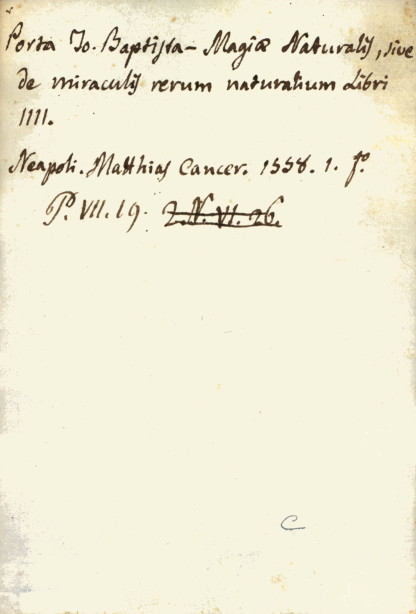 Porta Io. Baptista - Magiæ Naturalis, sive
de miraculis rerum naturalium Libri
IIII.
Neapoli. Matthias Cancer. 1558. 1. f.º
P. VII. 19. 2. N. VI. 26.
C